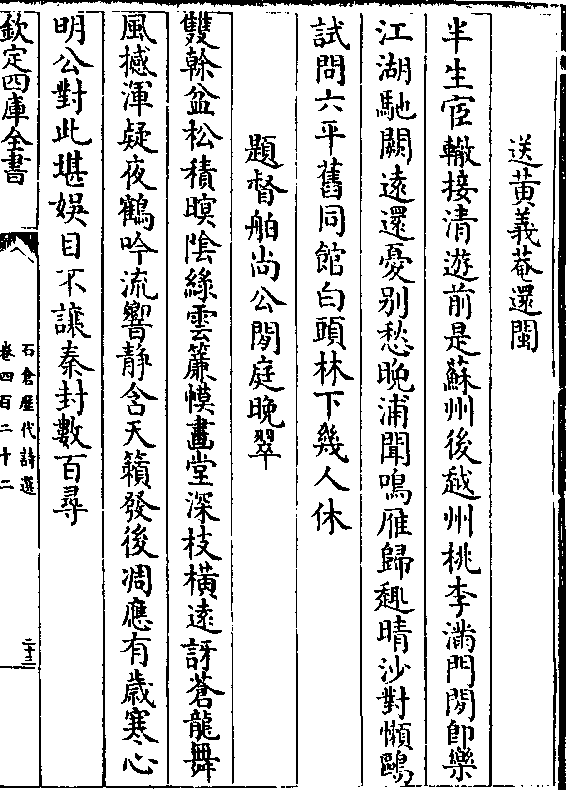 送黄義菴還閩
半生宦轍接清遊前是蘇州後越州桃李滿門閒即樂
江湖馳闕遠還憂别愁晚浦聞鳴雁歸趣晴沙對懶鷗
試問六平舊同館白頭林下幾人休
題督舶尚公閒庭晚翠
雙榦盆松積暝陰綠雲簾幙畫堂深枝橫遠訝蒼龍舞
風撼渾疑夜鶴吟流響静含天籟發後凋應有歲寒心
明公對此堪娛目不讓秦封數百尋
欽定四庫全書
石倉歷代詩選
卷四百二十二
二十三